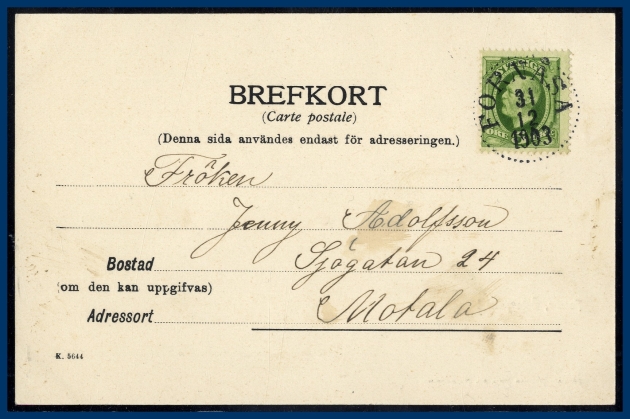 BREFKORT
(Carte postale)
(Denna sida användes endast för adresseringen.)
FORNÅSA
31
12
1903
ÖRE
Fröken
Jenny Adolfsson
Bostad Sjögatan 24
(om den kan uppgifvas)
Adressort Motala
K. 5644